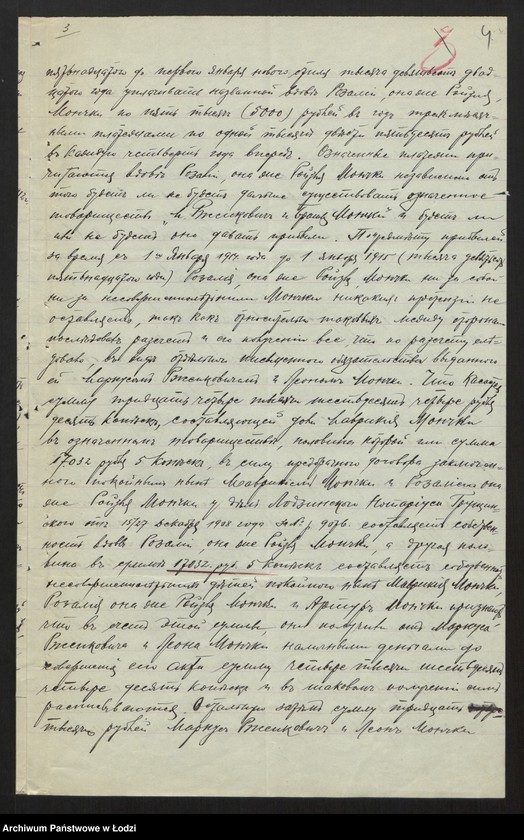 3
4
пятнадцатого до первого Января новаго стиля тысяча девятьсот двад-
цатого года уплачивать названной вдове Розалии, она же Ройзля,
Мончки по пять тысяч (5000) рублей в год трехмесяч-
ными платежами по одной тысяче двести пятьдесят рублей
в каждую четверть года вперед. Означенные платежи при-
читаются вдове Розалии, она же Ройзля Мончки независимо от
того будет ли не будет дальше существовать означенное
товарищество "М. Рженкович и братья Мончки" и будет ли
или не будет оно давать прибыли. По предмету прибылей
за время с 1го Января 1914 года до 1 Января 1915 (тысяча девятьсот
пятнадцатого года) Розалия, она же Ройзля, Мончки ни за собою
ни за несовершеннолетними Мончки никаких претензий не
оставляет, так как относительно таковых между сторонами
последовал разсчет и ею получено все, что по разсчету сле-
довало, в виде отдельного письменного обязательства выданного
ей Маркусом Рженковичем и Леоном Мончки. Что касается
суммы тридцать четыре тысячи шестьдесят четыре рубля
десять копеек, составляющей долю Маврикия Мончки
в означенном товариществе, половина которой или сумма
17032 рубля 5 копеек, в силу предбрачного договора заключен-
ного покойным ныне Маврикием Мончки и Розалиею она
же Ройзля Мончки у дел Лодзинского Нотариуса
ского от 15/27 Декабря 1908 года за № 9076 составляет собствен-
ность вдовы Розалии она же Ройзля Мончки, а другая поло-
вина в сумме 17032 руб. 5 копеек составляет собственность
несовершеннолетних детей покойного ныне Маврикия Мончки,
Розалия она же Ройзля Мончки и Артур Мончки признают
что в счет этой суммы, они получили от Маркуса
Рженковича и Леона Мончки наличными деньгами до
совершения сего акта сумму четыре тысячи шестьдесят
четыре десять копеек и в таковом получении сим
расписываются. Остальную затем сумму тридцать
тысяч рублей Маркус Рженкович и Леон Мончки
Archiwum Państwowe w Łodzi